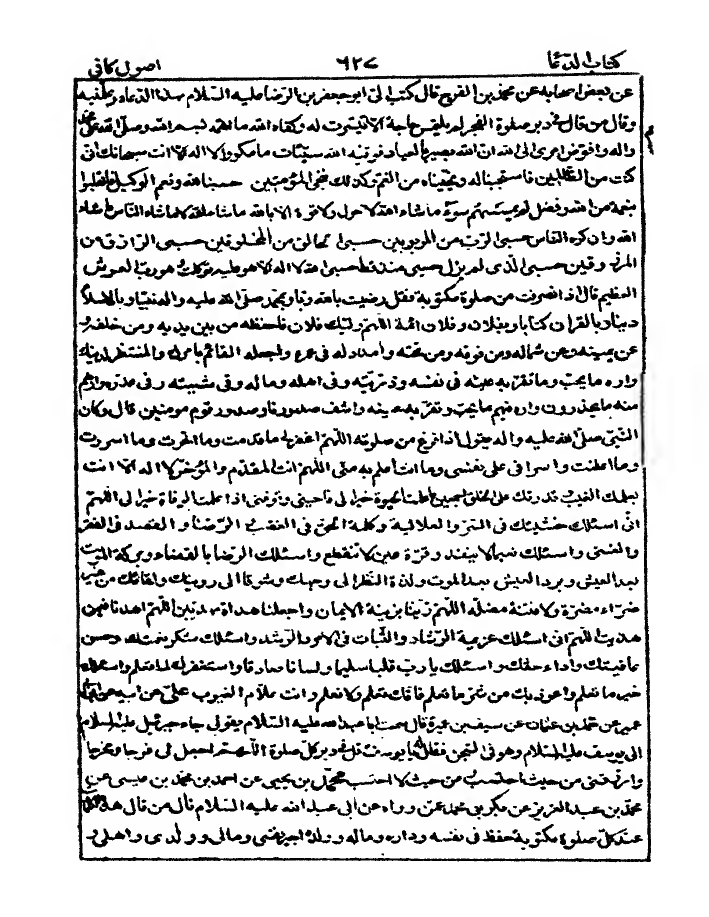 كتاب الدعا ٦٢٧ اصول كافى
عن بعض اصحابه عن محمد بن الفرج قال كتب الى ابو جعفر بن الرضا عليه السلام بهذا الدعاء وعلمنيه
وقال من قال فى دبر صلوة الفجر لم يلتمس حاجة الا تيسرت له وكفاه الله ما اهمه بسم الله وصلى الله على محمد
واله وافوض امرى الى الله ان الله بصير بالعباد فوقيه الله سيئات ما مكروا لا اله الا انت سبحانك انى
كنت من الظالمين فاستجبنا له ونجيناه من الغم وكذلك ننجى المؤمنين حسبنا الله ونعم الوكيل فانقلبوا
بنعمة من الله وفضل لم يمسسهم سوء ما شاء الله لا حول ولا قوة الا بالله ما شاء الله لا ما شاء الناس ما شاء
الله وان كره الناس حسبى الرب من المربوبين حسبى الخالق من المخلوقين حسبى الرازق من
المرزوقين حسبى الذى لم يزل حسبى منذ قط حسبى الله لا اله الا هو عليه توكلت وهو رب العرش
العظيم قال اذا انصرفت من صلوة مكتوبة فقل رضيت بالله ربا وبمحمد صلى الله عليه واله نبيا وبالاسلام
دينا وبالقران كتابا وبفلان وفلان ائمة اللهم وليك فلان فاحفظه من بين يديه ومن خلفه و
عن يمينه وعن شماله ومن فوقه ومن تحته وامدد له فى عمره واجعله القائم بامرك والمنتظر لدينك
واره ما يحب وما تقر به عينه فى نفسه وذريته وفى اهله وماله وفى شيعته وفى عدوه وارهم
منه ما يحذرون واره فيهم ما يحب وتقر به عينه واشف صدورنا وصدور قوم مومنين قال وكان
النبى صلى الله عليه واله يقول اذا فرغ من صلوته اللهم اغفر لى ما قدمت وما اخرت وما اسررت
وما اعلنت واسرافى على نفسى وما انت اعلم به منى اللهم انت المقدم والمؤخر لا اله الا انت
بعلمك الغيب وبقدرتك على الخلق اجمعين ما علمت الحيوة خيرا لى فاحينى وتوفنى اذا علمت الوفاة خيرا لى اللهم
انى اسئلك خشيتك فى السر والعلانية وكلمة الحق فى الغضب والرضا والقصد فى الفقر
والغنى واسئلك نعيما لا ينفد وقرة عين لا تنقطع واسئلك الرضا بالقضاء وبركة الموت
بعد العيش وبرد العيش بعد الموت ولذة النظر الى وجهك وشوقا الى رويتك ولقائك من غير
ضراء مضرة ولا فتنة مضلة اللهم زينا بزينة الايمان واجعلنا هداة مهديين اللهم اهدنا فيمن
هديت اللهم انى اسئلك عزيمة الرشاد والثبات فى الامر والرشد واسئلك شكر نعمتك وحسن
عافيتك واداء حقك واسئلك يا رب قلبا سليما ولسانا صادقا واستغفرك لما تعلم واسئلك
خير ما تعلم واعوذ بك من شر ما تعلم فانك تعلم ولا نعلم وانت علام الغيوب على عن ابيه عن ابن ابى
عمير عن محمد بن عن سيف بن عميرة قال سمعت ابا عبد الله عليه السلام يقول جاء جبرئيل عليه السلام
الى يوسف عليه السلام وهو فى السجن فقال له يا يوسف قل فى دبر كل صلوة اللهم اجعل لى فرجا ومخرجا
وارزقنى من حيث احتسب ومن حيث لا احتسب محمد بن يحيى عن احمد بن محمد بن عيسى عن
محمد بن عبد العزيز عن بكر بن محمد عمن رواه عن ابى عبد الله عليه السلام قال من قال هذه الكلمات
عند كل صلوة مكتوبة حفظ فى نفسه وداره وماله وولده اجير نفسى ومالى وولدى واهلى و